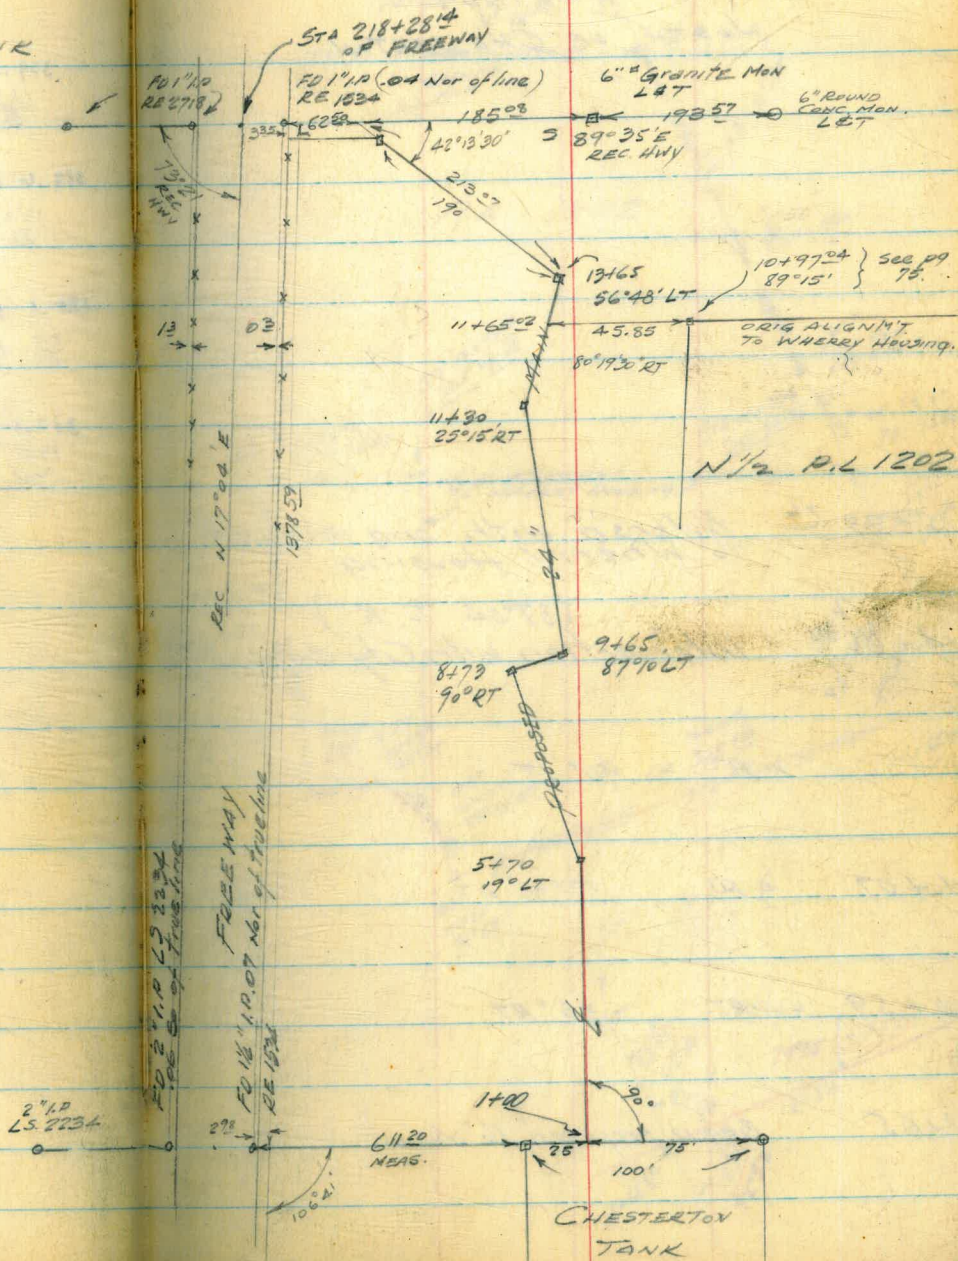 STA 218+28 14
OF FREEWAY
FD 1" I.P.
RE 2718
FD 1" I.P. (.04 Nor of line)
RE 1534
6" Granite MON
L&T
6" ROUND
CONC. MON.
L&T
185 08
193 57
42°13'30"
S 89°35'E
REC. HWY
335
REC
HWY
213 07
190
13+65
56°48' LT
10+97 04
89°15'
See pg
75.
11+65 02
45.85
ORIG ALIGNM'T
TO WHERRY HOUSING.
80°19'30" RT
13
03
MAIN
11+30
25°15' RT
N 1/2 P.L 1202
REC N 17°04' E
1378 59
24"
9+65
87°10 LT
8+73
90° RT
PROPOSED
5+70
19° LT
FREEWAY
FD 2" I.P. LS 2234
.06 So of true line
FD 1 1/2" I.P. .07 Nor of true line
RE 1534
2" I.P.
LS. 2234
298
611 20
MEAS.
106°41'
1+00
90°
25
75'
100'
CHESTERTON
TANK